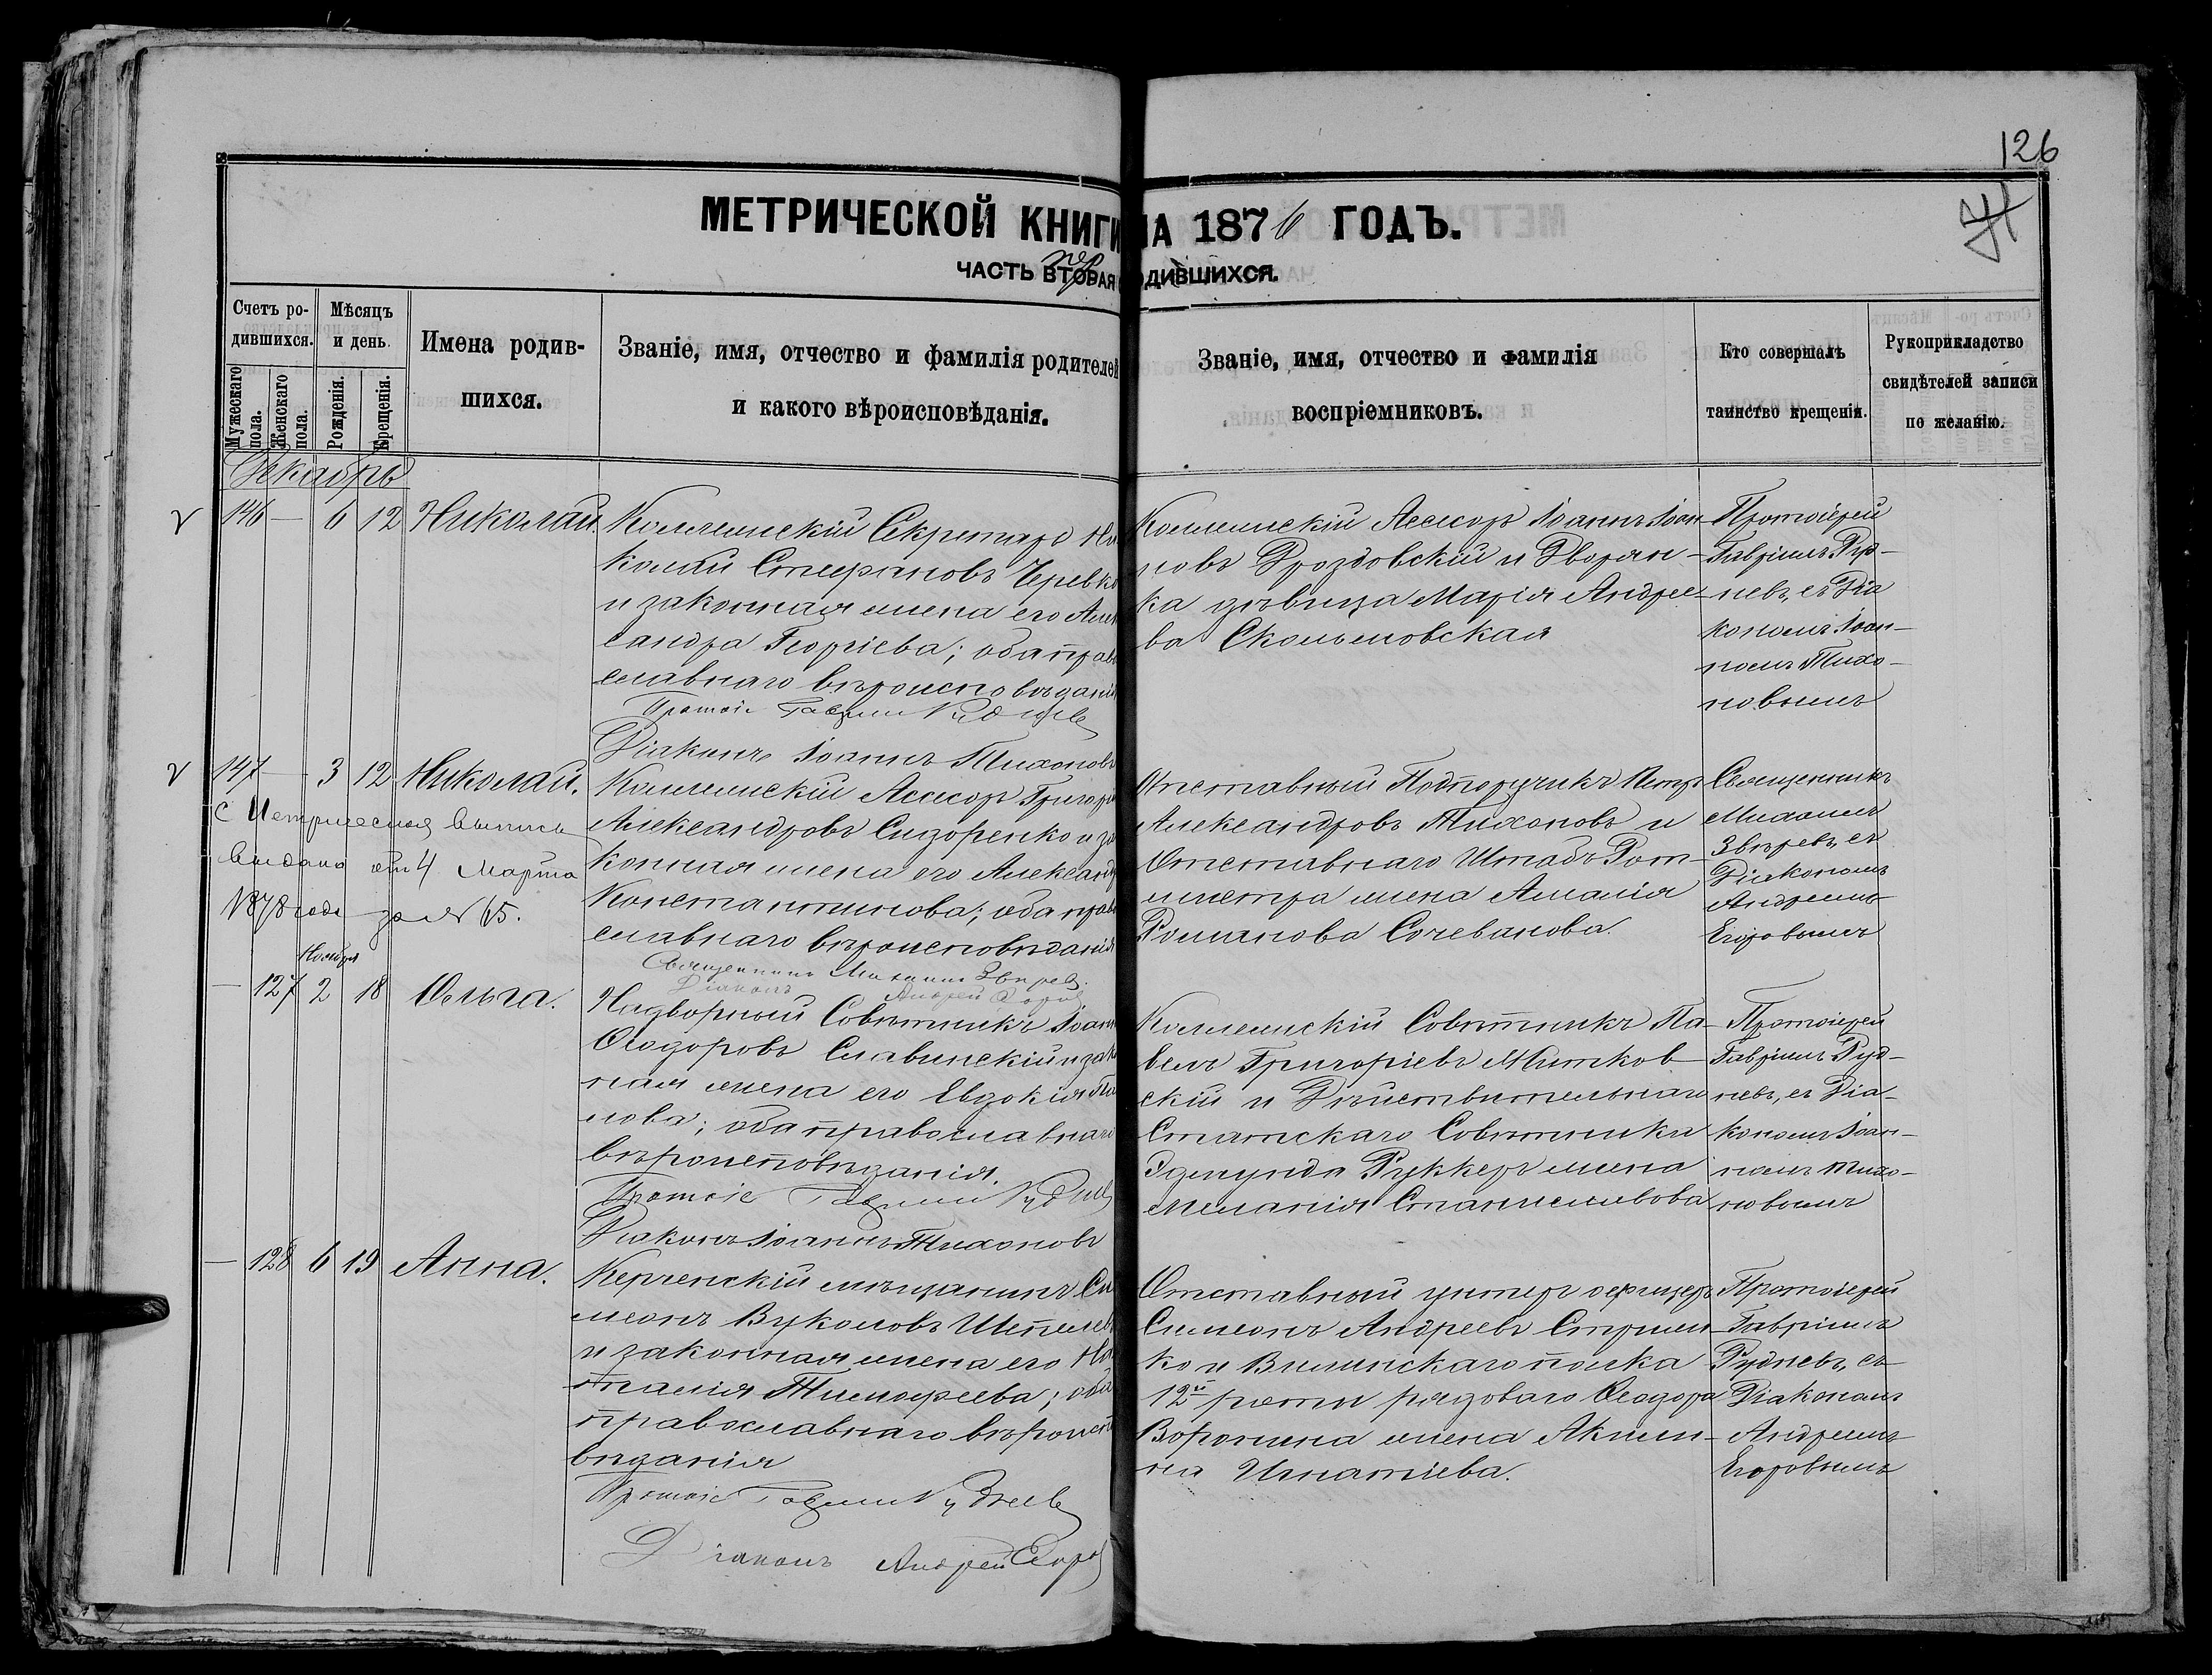 126
МЕТРИЧЕСКОЙ КНИГИ НА 1876 ГОДЪ.
ЧАСТЬ ВТОРАЯ ОДИВШИХСЯ.
Счетъ ро-
дившихся.
Мужескаго пола.
Женскаго пола.
Мѣсяцъ
и день.
Рожденія.
Крещенія.
Имена родив-
шихся.
Званіе, имя, отчество и фамилія родителей
и какого вѣроисповѣданія.
Званіе, имя, отчество и фамилія
воспріемниковъ.
Кто совершалъ
таинство крещенія.
Рукоприкладство
свидѣтелей записи
по желанію.
Декабрь
146 — 6 12 Николай.
Коллежскій Секретарь Ни
колай Стефановъ Черевко
и законная жена его Алек
сандра Георгіева; оба право
славнаго вѣроисповѣданія
Протоіе Гавріилъ Рудневъ
Діаконъ Іоаннъ Тихоновъ
Коллежскій Ассесоръ Іоаннъ Іоан-
новъ Дроздовскій и Дворян-
ка дѣвица Марія Андрее-
ва
Протоіерей
Гавріилъ Руд-
невъ, съ Діа
кономъ Іоан-
номъ Тихо-
новымъ
147 — 3 12 Николай.
Метрическая выпись
выдана от 4 Марта
1878 года за № 65.
Коллежскій Ассесоръ Григорій
Александровъ Сидоренко и за
конная жена его Александра
Константинова; оба право
славнаго вѣроисповѣданія
Священникъ Михаилъ Звѣревъ.
Діаконъ Андрей Егоровъ
Отставный Подпоручикъ Петръ
Александровъ Тихоновъ и
Отставнаго Штабъ Рот-
мистра жена Амалія
Романова Сочеванова.
Священникъ
Михаилъ
Звѣревъ, съ
Діакономъ
Андреемъ
Егоровымъ
Ноября
— 127 2 18 Ольга.
Надворный Совѣтникъ Іоаннъ
Ѳеодоровъ Славинскій и зако
ная жена его Евдокія
оба православнаго
вѣроисповѣданія.
Протоіе Гавріилъ Рудневъ
Діаконъ Іоаннъ Тихоновъ
Коллежскій Совѣтникъ Па-
велъ Григоріевъ Митков-
скій и Дѣйствительнаго
Статскаго Совѣтника
Эдмунда Руккеръ жена
Меланія Станиславова
Протоіерей
Гавріилъ Руд-
невъ, съ Діа-
кономъ Іоан-
номъ Тихо-
новымъ
— 128 6 19 Анна.
Керченскій мѣщанинъ Си
меонъ Вуколовъ Шепелев
и законная жена его На
талія Тимофеева; оба
православнаго вѣроиспо
вѣданія
Протоіе Гавріилъ Рудневъ
Діаконъ Андрей Егоровъ
Отставный унтеръ офицеръ
Симеонъ Андреевъ
ко и Виленскаго полка
12й роты рядоваго Ѳеодора
Воронина жена Акили-
на Игнатіева.
Протоіерей
Гавріилъ
Рудневъ, съ
Діакономъ
Андреемъ
Егоровымъ